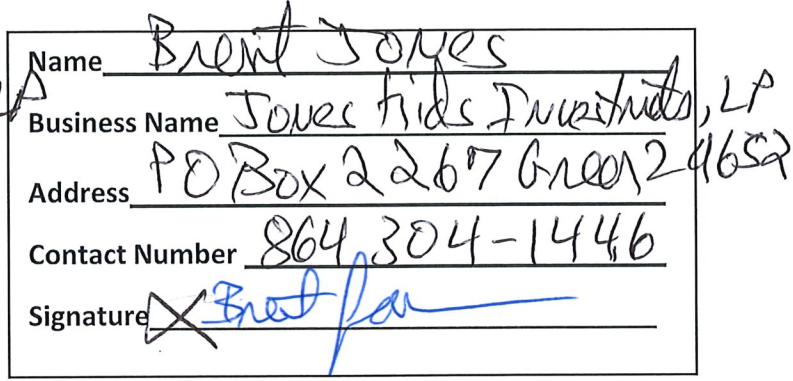 Name Brent Jones
Business Name Jones Kids Investments, LP
Address PO Box 2267 Greer 29652
Contact Number 864 304-1446
Signature X Brent Jones